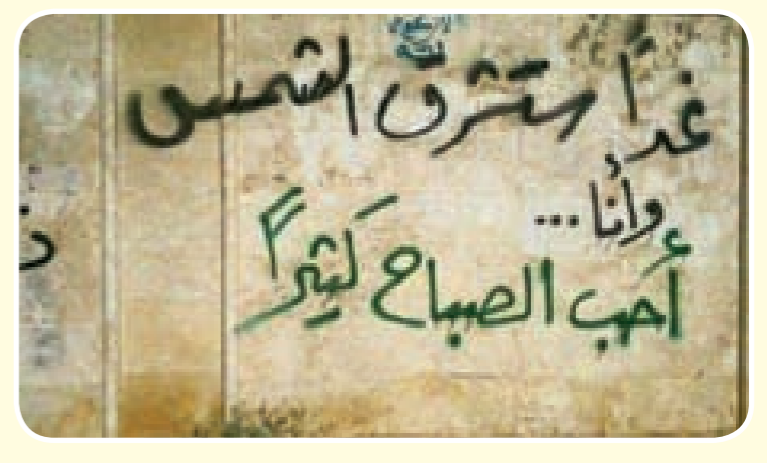 غداً ستشرق الشمس
وأنا...
أحب الصباح كثيراً